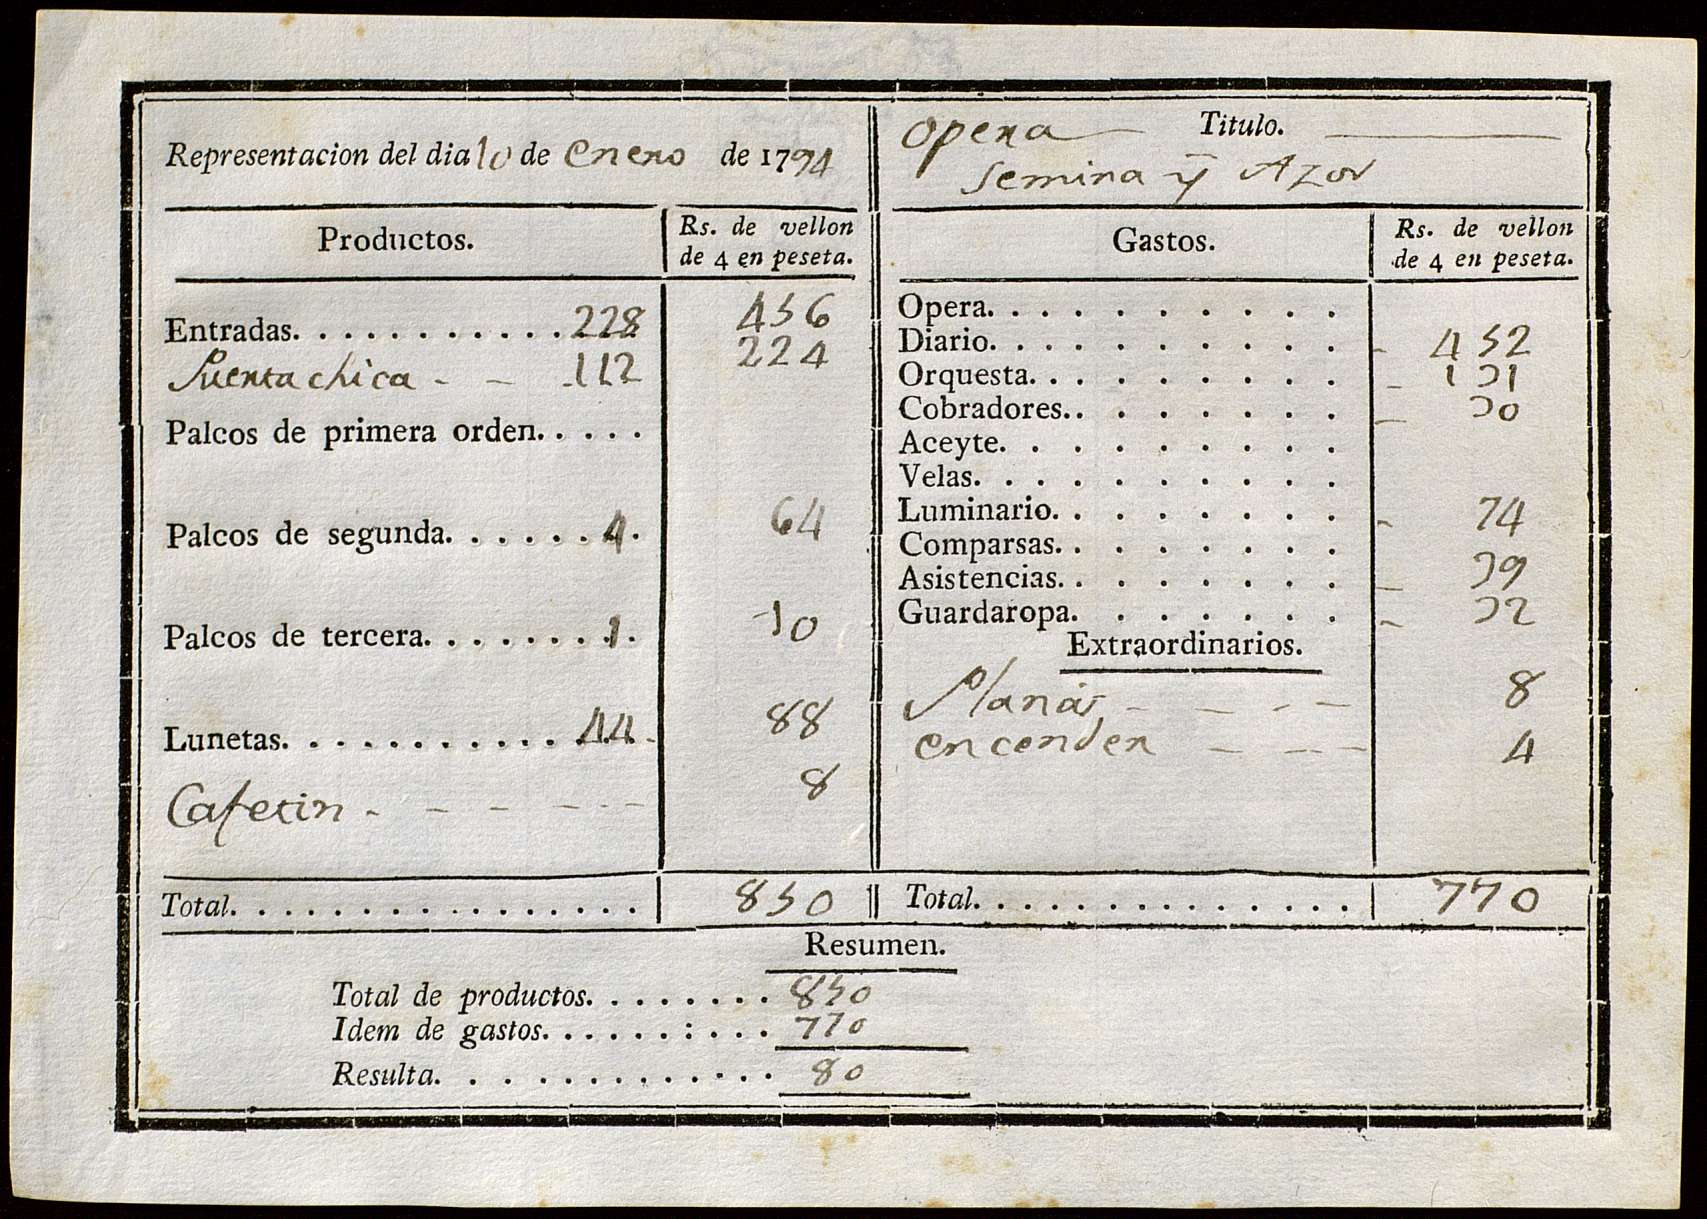 Representacion del dia 10 de Enero de 1794
Opera Titulo.
Semira y Azor
Productos. Rs. de vellon de 4 en peseta.
Entradas. 228 456
Puerta chica - - 112 224
Palcos de primera orden.
Palcos de segunda. 4. 64
Palcos de tercera. 1. 10
Lunetas. 44. 88
Cafetin - - - - - 8
Total. 850
Gastos. Rs. de vellon de 4 en peseta.
Opera.
Diario. 452
Orquesta. 131
Cobradores. 30
Aceyte.
Velas.
Luminario. 74
Comparsas.
Asistencias. 39
Guardaropa. 32
Extraordinarios.
Planas, - - - - 8
encender - - - 4
Total. 770
Resumen.
Total de productos. 850
Idem de gastos. 770
Resulta. 80